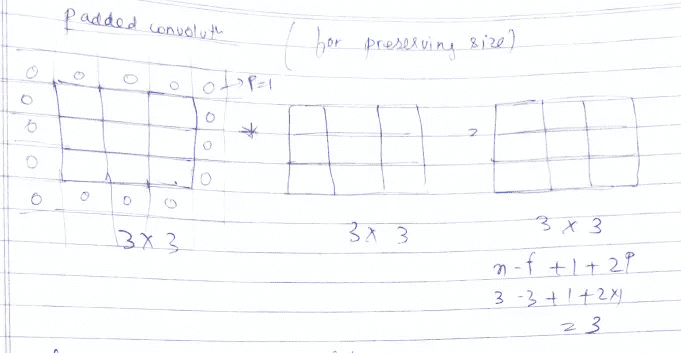 Padded convoluth
(for preserving size)
0 0 0 0 0 → P=1
0 0
0 * =
0 0
0 0
0 0 0 0
3 x 3
3 x 3
3 x 3
n-f +1+2P
3 -3 +1+2x1
= 3